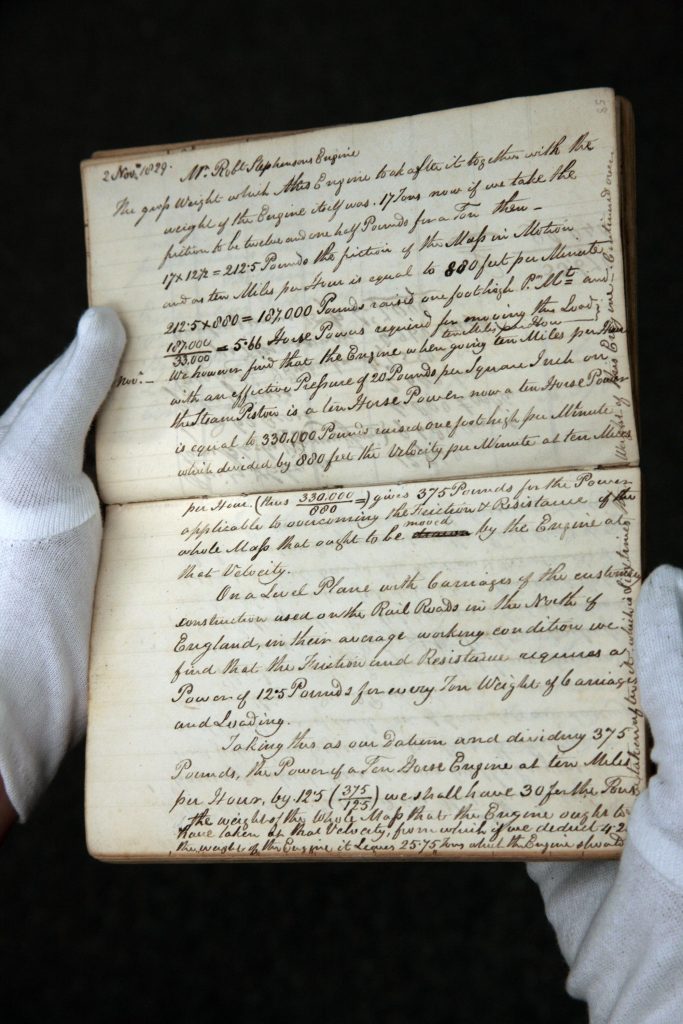 58
2 Novr. 1829. Mr. Robt Stephensons Engine
The gross Weight which this Engine took after it together with the
weight of the Engine itself was. 17 Tons now if we take the
friction to be twelve and one half Pounds for a Ton then —
17 x 12½ = 212.5 Pounds the friction of the Mass in Motion
and as ten Miles per Hour is equal to 880 feet per Minute
212.5 x 880 = 187,000 Pounds raised one foot high Pr. Mt. and
187.000/33.000 = 5.66 Horse Powers required for moving this Load
ten Miles per Hour
Novr. — We however find that the Engine when going ten Miles per Hour
with an effective Pressure of 20 Pounds per Square Inch on
the Steam Piston is a ten Horse Power now a ten Horse Power
is equal to 330.000 Pounds raised one foot high per Minute
which divided by 880 feet the Velocity per Minute at ten Miles
per Hour. (thus 330.000/880 =) gives 375 Pounds for the Power
applicable to overcoming the Friction & Resistance of the
whole Mass that ought to be moved by the Engine at
that Velocity.
On a Level Plane with Carriages of the customary
construction used on the Rail Roads in the North of
England, in their average working condition we
find that the Friction and Resistance requires a
Power of 12.5 Pounds for every Ton Weight of Carriage
and Loading.
Taking this as our Datum and dividing 375
Pounds, the Power of a Ten Horse Engine at ten Miles
per Hour, by 12.5 (375/12.5) we shall have 30 for the Tons
the weight of the Whole Mass that the Engine ought to
have taken at that Velocity, from which if we deduct 4.25
the weight of the Engine it Leaves 25.75 Tons which the Engine should
taken after it which is times the
Weight of this Engine. Continued over